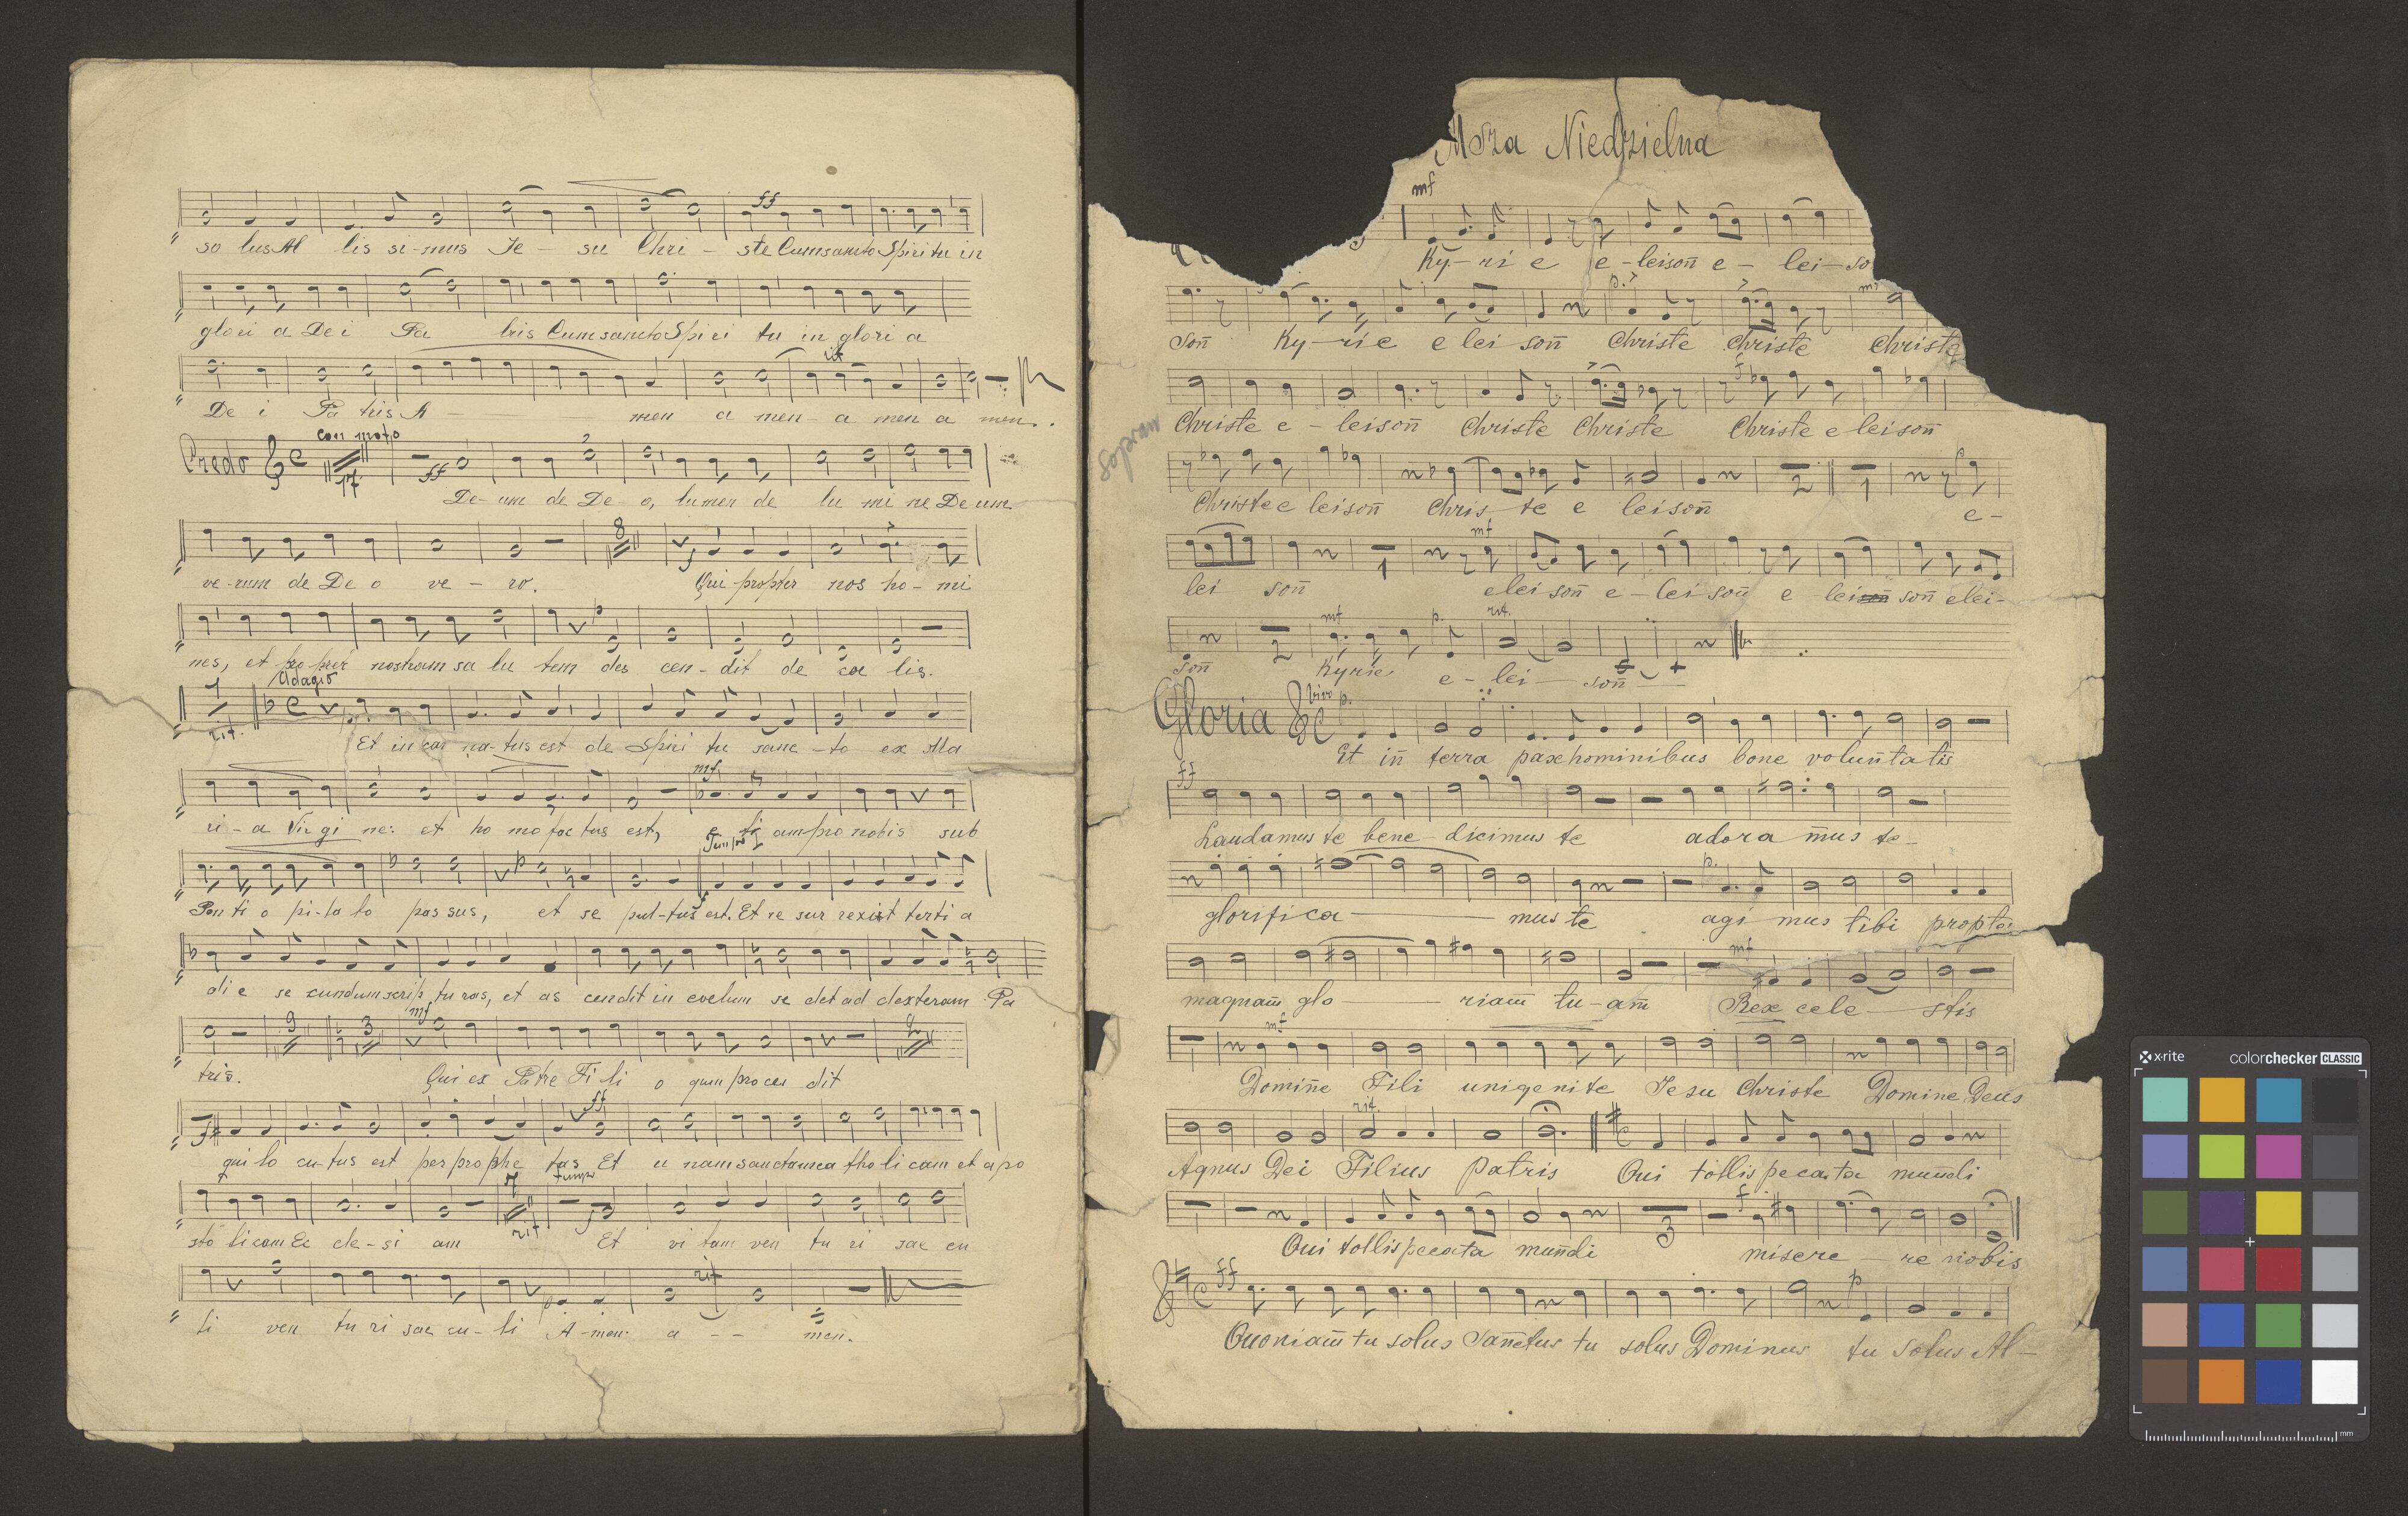 so lus Al lis si-mus Je - su Chri - ste Cum sancto Spiri tu in
ff
glori a De i Pa tris Cum sancto Spiri tu in glori a
rit
De i Pa tris A men a men - a men a men.
con moto
Credo 17 ff
De-um de De o, lumen de lu mi ne De um
8
ve-rum de De o ve - ro. Qui propter nos ho - mi
p
nes, et propter nostram sa lu tem des cen-dit de coe lis.
1 Adagio
rit. p
Et in car na-tus est de Spiri tu sanc-to ex Ma
mf
ri-a Vir gi ne: et ho mo fac tus est, e ti am pro nobis sub
p
Pon ti o pi-la to pas sus, et se pul-tus est. Et re sur rexit terti a
di e se cundum scrip tu ras, et as cendit in coelum se det ad dexteram Pa
9 3 mf 2
tris. Qui ex Patre Fi li o que pro ce dit
f ff
qui lo cu-tus est per prophe tas Et u nam sanctam ca tho li cam et a po
rit f
sto licam Ec cle-si am Et vi tam ven tu ri sae cu
rit
li ven tu ri sae cu-li A-men. a - - men.
Msza Niedzielna
mf
Ky-ri e e-leison̄ e - lei-so
p. mf
son̄ Ky-ri e e lei son̄ Christe Christe Christe
f
Sopran
Christe e - leison̄ Christe Christe Christe e leison̄
2 1 p
Christe e leison̄ Chris te e leison̄ e-
1 mf
lei son̄ elei son̄ e-lei son̄ e lei son̄ elei-
2 mf p. rit.
son̄ Kyrie e-lei-son̄
Gloria C vivo p.
Et in̄ terra pax hominibus bone volun̄tatis
ff
Laudamus te bene-dicimus te adora m̄us te-
p.
glorifica - mus te agi mus tibi propter
mf
magnam̄ glo - riam̄ tu-am̄ Rex cele-stis
mf
Domin̄e Fili unigenite Jesu Christe Domine Deus
rit.
Agnus Dei Filius Patris Qui tollis pecata mun̄di
3 f
Qui tollis pecata mun̄di misere - re nobis
C ff p
Quoniam̄ tu solus San̄ctus tu solus Dominus tu solus Al-
x-rite colorchecker CLASSIC
mm